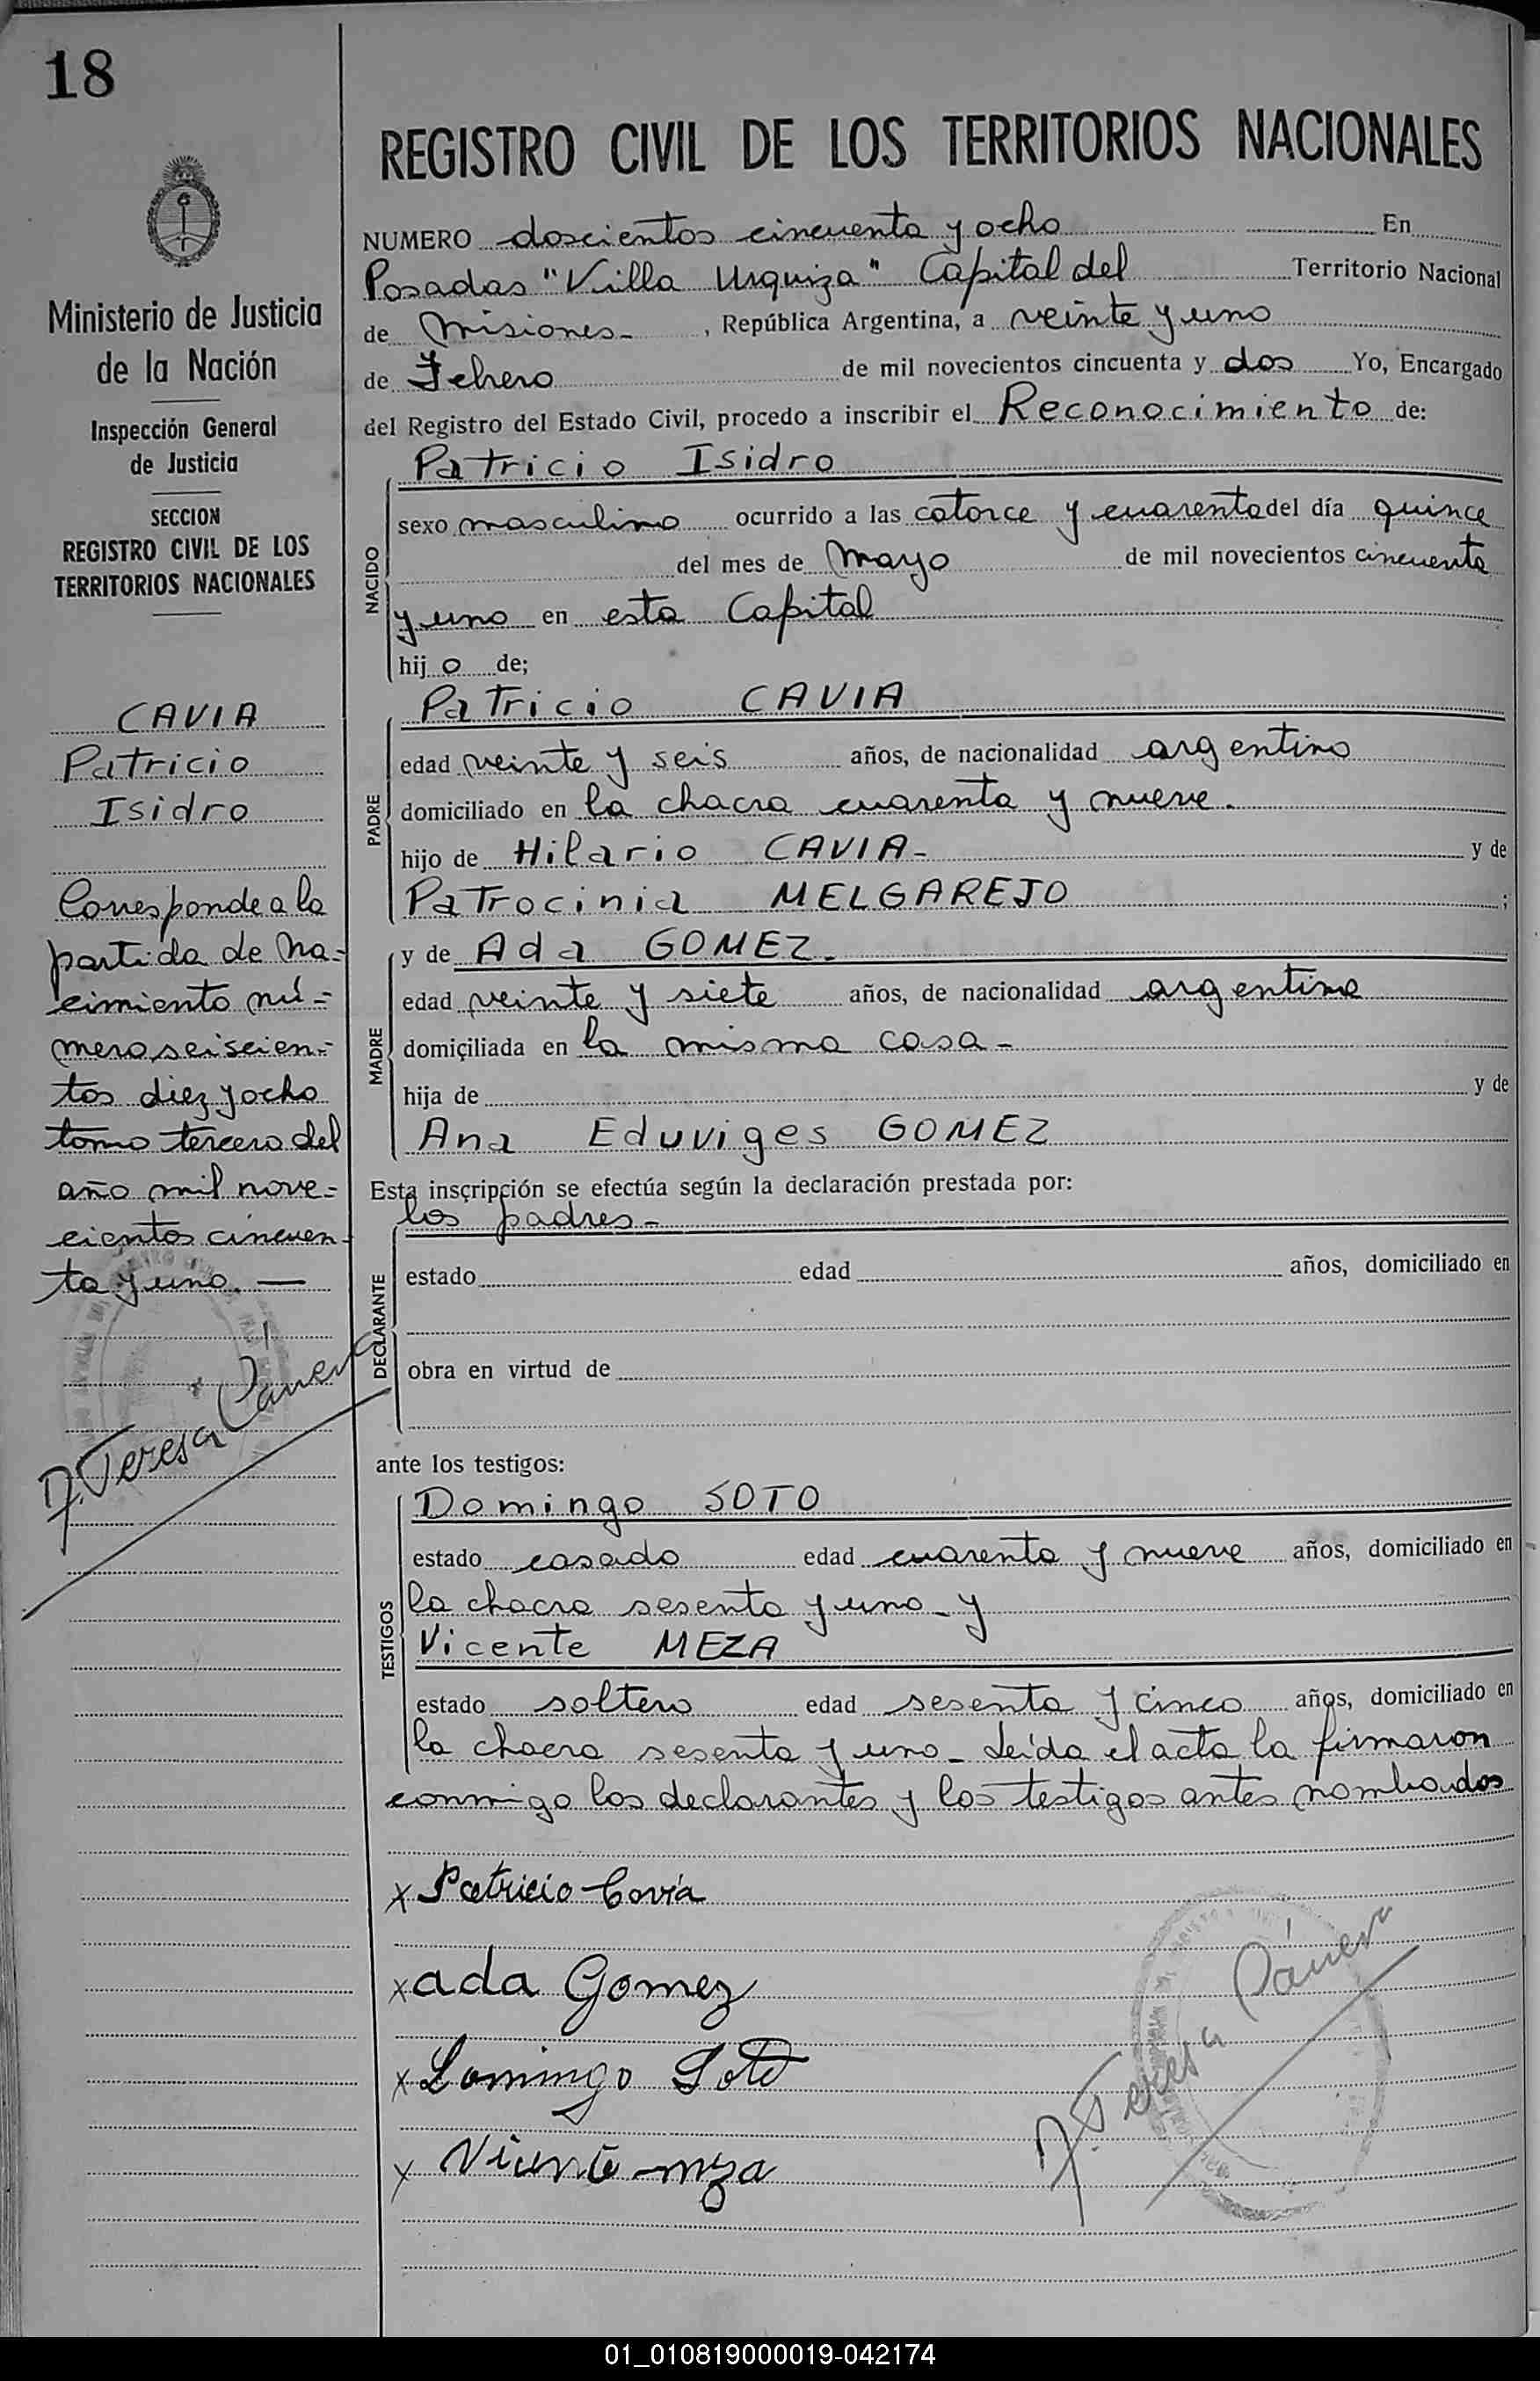 18
REGISTRO CIVIL DE LOS TERRITORIOS NACIONALES
Ministerio de Justicia
de la Nación
Inspección General
de Justicia
SECCION
REGISTRO CIVIL DE LOS
TERRITORIOS NACIONALES
CAVIA
Patricio
Isidro
Corresponde a la
partida de na=
cimiento nú=
mero seiscien=
tos diez y ocho
tomo tercero del
año mil nove=
cientos cincuen-
ta y uno. —
NUMERO doscientos cincuenta y ocho En
Posadas "Villa Urquiza" Capital del Territorio Nacional
de Misiones- , República Argentina, a veinte y uno
de Febrero de mil novecientos cincuenta y dos Yo, Encargado
del Registro del Estado Civil, procedo a inscribir el Reconocimiento de:
Patricio Isidro
NACIDO
sexo masculino ocurrido a las catorce y cuarenta del día quince
del mes de Mayo de mil novecientos cincuenta
y uno en esta Capital
hijo de;
Patricio CAVIA
PADRE
edad veinte y seis años, de nacionalidad argentino
domiciliado en la chacra cuarenta y nueve.
hijo de Hilario CAVIA- y de
Patrocinia MELGAREJO ;
MADRE
y de Ada GOMEZ.
edad veinte y siete años, de nacionalidad argentina
domiciliada en la misma casa-
hija de y de
Ana Eduviges GOMEZ
Esta inscripción se efectúa según la declaración prestada por:
los padres-
DECLARANTE
estado edad años, domiciliado en
obra en virtud de
ante los testigos:
Domingo SOTO
TESTIGOS
estado casado edad cuarenta y nueve años, domiciliado en
la chacra sesenta y uno- y
Vicente MEZA
estado soltero edad sesenta y cinco años, domiciliado en
la chacra sesenta y uno- Leída el acta la firmaron
conmigo los declarantes y los testigos antes nombrados
x Patricio Cavia
x ada Gomez
x Domingo Soto
x Vicente meza
Teresa
01_010819000019-042174